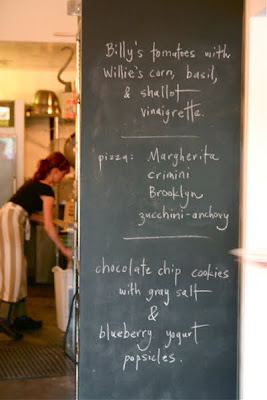 Billy's tomatoes with
Willie's corn, basil,
& shallot
vinaigrette.
pizza: Margherita
crimini
Brooklyn
zucchini-anchovy
chocolate chip cookies
with gray salt
&
blueberry yogurt
popsicles.